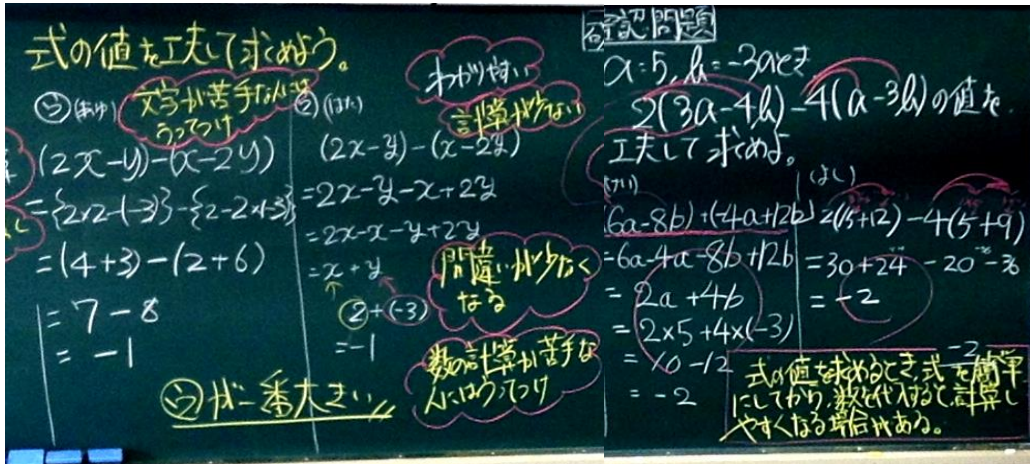 式の値を工夫して求めよう。
㋒(あゆ)
文字が苦手な人には
うってつけ
(2x-y)-(x-2y)
={2×2-(-3)}-{2-2×(-3)}
=(4+3)-(2+6)
=7-8
=-1
(はた)
わかりやすい
計算が少ない
(2x-y)-(x-2y)
=2x-y-x+2y
=2x-x-y+2y
=x+y
2+(-3)
=-1
間違いが少なく
なる
数の計算が苦手な
人にはうってつけ
㋒が一番大きい
確認問題
a=5, b=-3のとき
2(3a-4b)-4(a-3b)の値を
工夫して求めよ。
(けい)
(6a-8b)+(-4a+12b)
=6a-4a-8b+12b
=2a+4b
=2×5+4×(-3)
=10-12
=-2
(よし)
2(15+12)-4(5+9)
=30+24-20-36
=-2
-2
式の値を求めるとき,式を簡単
にしてから,数を代入すると,計算し
やすくなる場合がある。